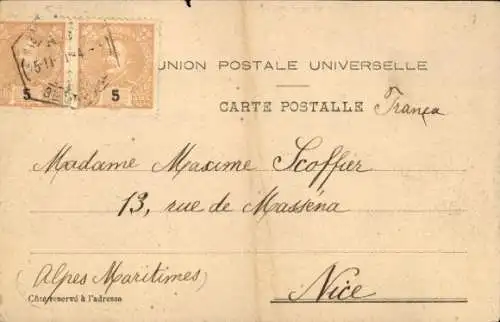 UNION POSTALE UNIVERSELLE
CARTE POSTALLE França
5 5
Madame Maxime Scoffier
13, rue de Masséna
(Alpes Maritimes)
Nice
Côté reservé à l'adresse